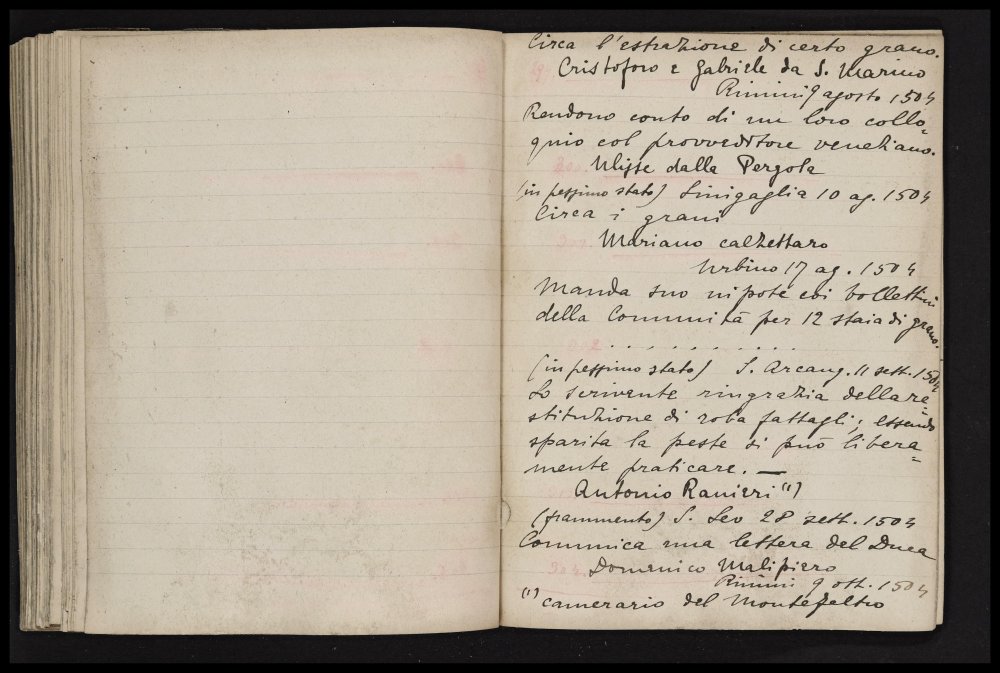 Circa l'estrazione di certo grano.
Cristoforo e Gabriele da S. Marino
Rimini 9 agosto 1504
Rendono conto di un loro collo=
quio col provveditore veneziano.
Ulisse dalla Pergola
(in pessimo stato) Sinigaglia 10 ag. 1504
Circa i grani
Mariano calzettaro
Urbino 17 ag. 1504
Manda suo nipote coi bollettini
della Comunità per 12 staia di grano.
. . . . . . . . . .
(in pessimo stato) S. Arcang. 11 sett. 1504
Lo scrivente ringrazia della re=
stituzione di roba fattagli; essendo
sparita la peste si può libera=
mente praticare. —
Antonio Ranieri (1)
(frammento) S. Leo 28 sett. 1504
Comunica una lettera del Duca
Domenico Malipiero
Rimini 9 ott. 1504
(1) camerario del Montefeltro